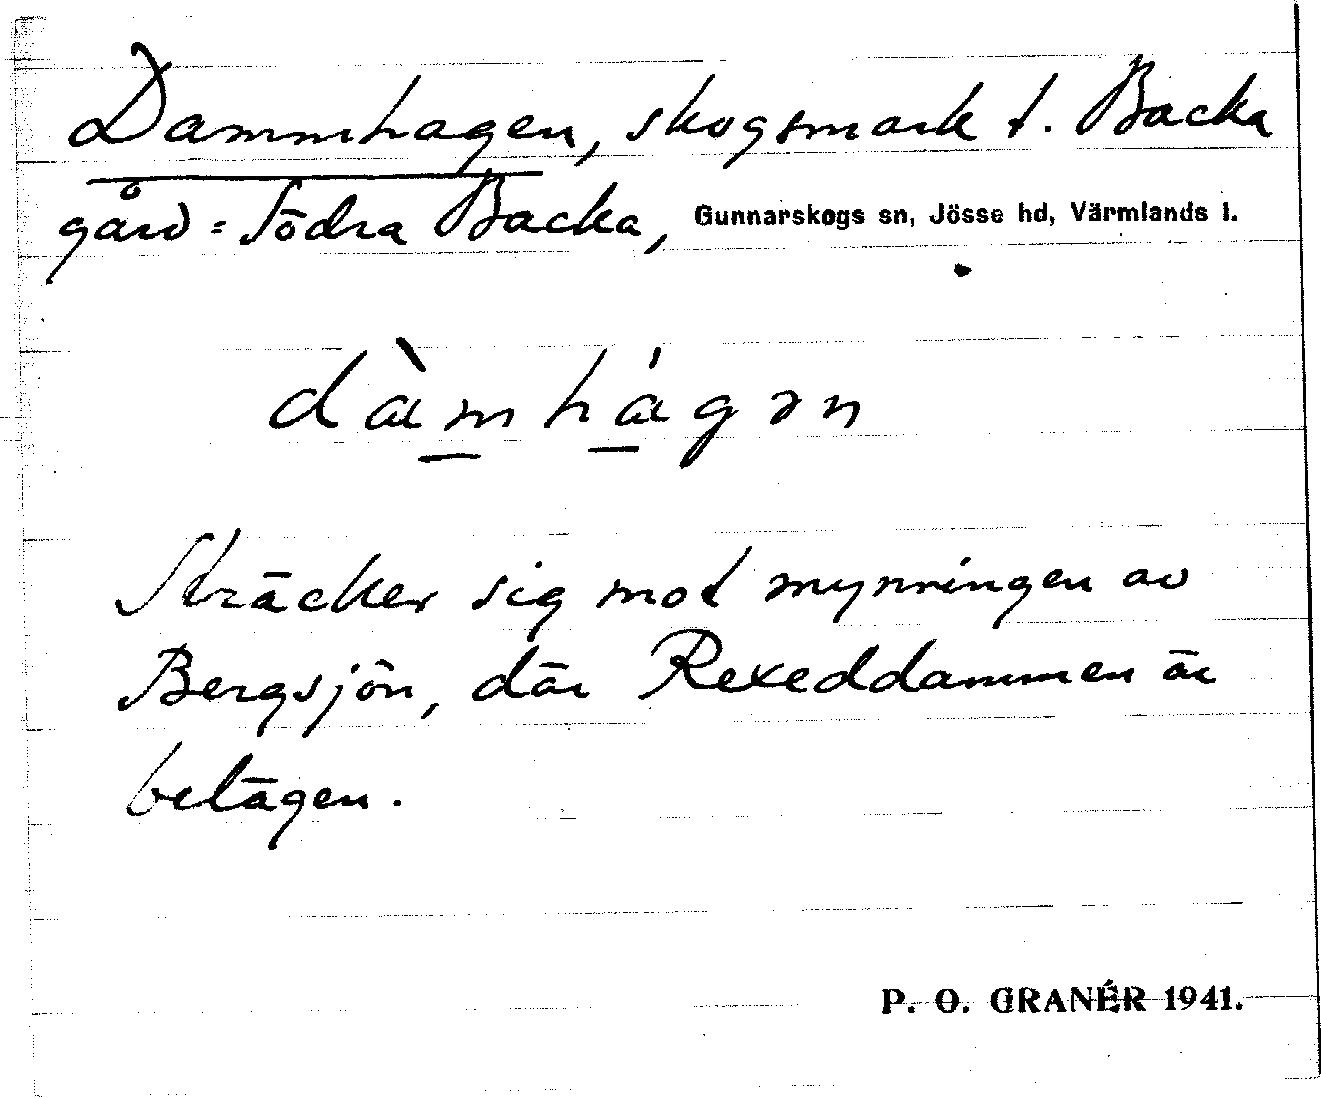 Dammhagen, skogsmark t. Backa
gård = Södra Backa, Gunnarskogs sn, Jösse hd, Värmlands l.
dàmhágən
Sträcker sig mot mynningen av
Bergsjön, där Rexeddammen är
belägen.
P. O. GRANÉR 1941.